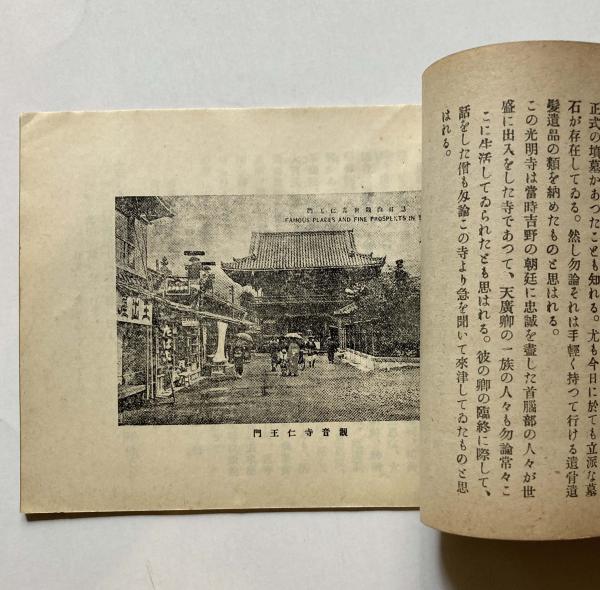 正式の墳墓があつたことも知れる。尤も今日に於ても立派な墓
石が存在してゐる。然し勿論それは手輕く持つて行ける遺骨遺
髪遺品の類を納めたものと思はれる。
この光明寺は當時吉野の朝廷に忠誠を盡した首腦部の人々が世
盛に出入をした寺であつて、天廣卿の一族の人々も勿論常々こ
こに生活してゐられたとも思はれる。彼の卿の臨終に際して、
話をした僧も勿論この寺より急を聞いて來津してゐたものと思
はれる。
FAMOUS PLACES AND FINE PROSPECTS IN
門王仁寺音觀